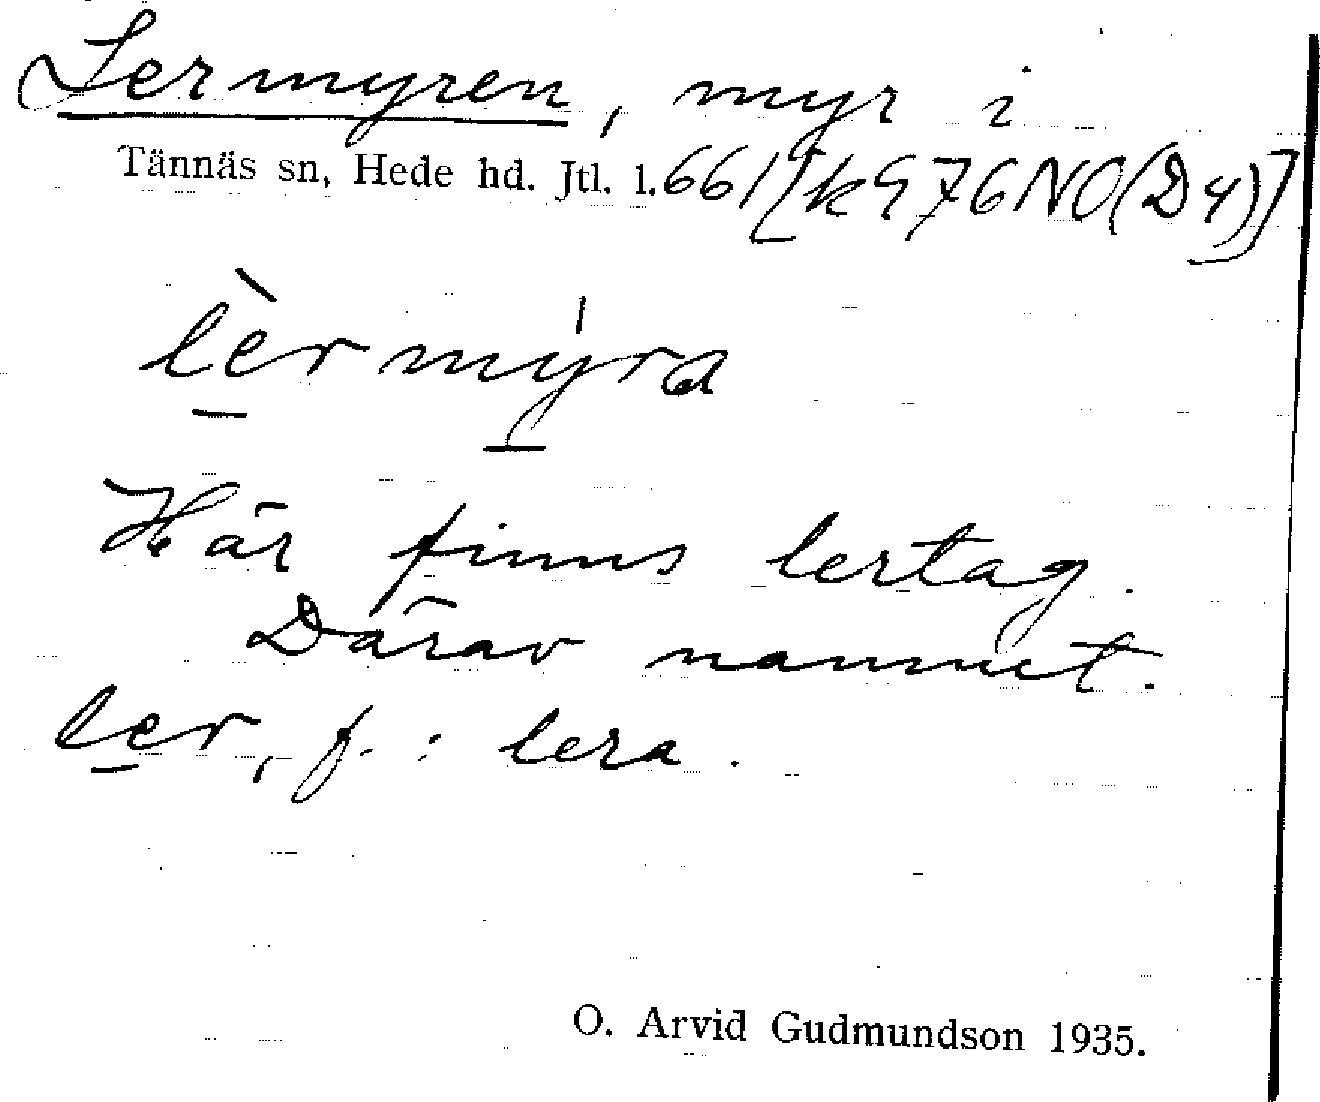 Lermyren, myr i
Tännäs sn, Hede hd. Jtl. l. 661 [k976NO(D4)]
lèrmýra
Här finns lertag.
Därav namnet.
ler, f. : lera.
O. Arvid Gudmundson 1935.